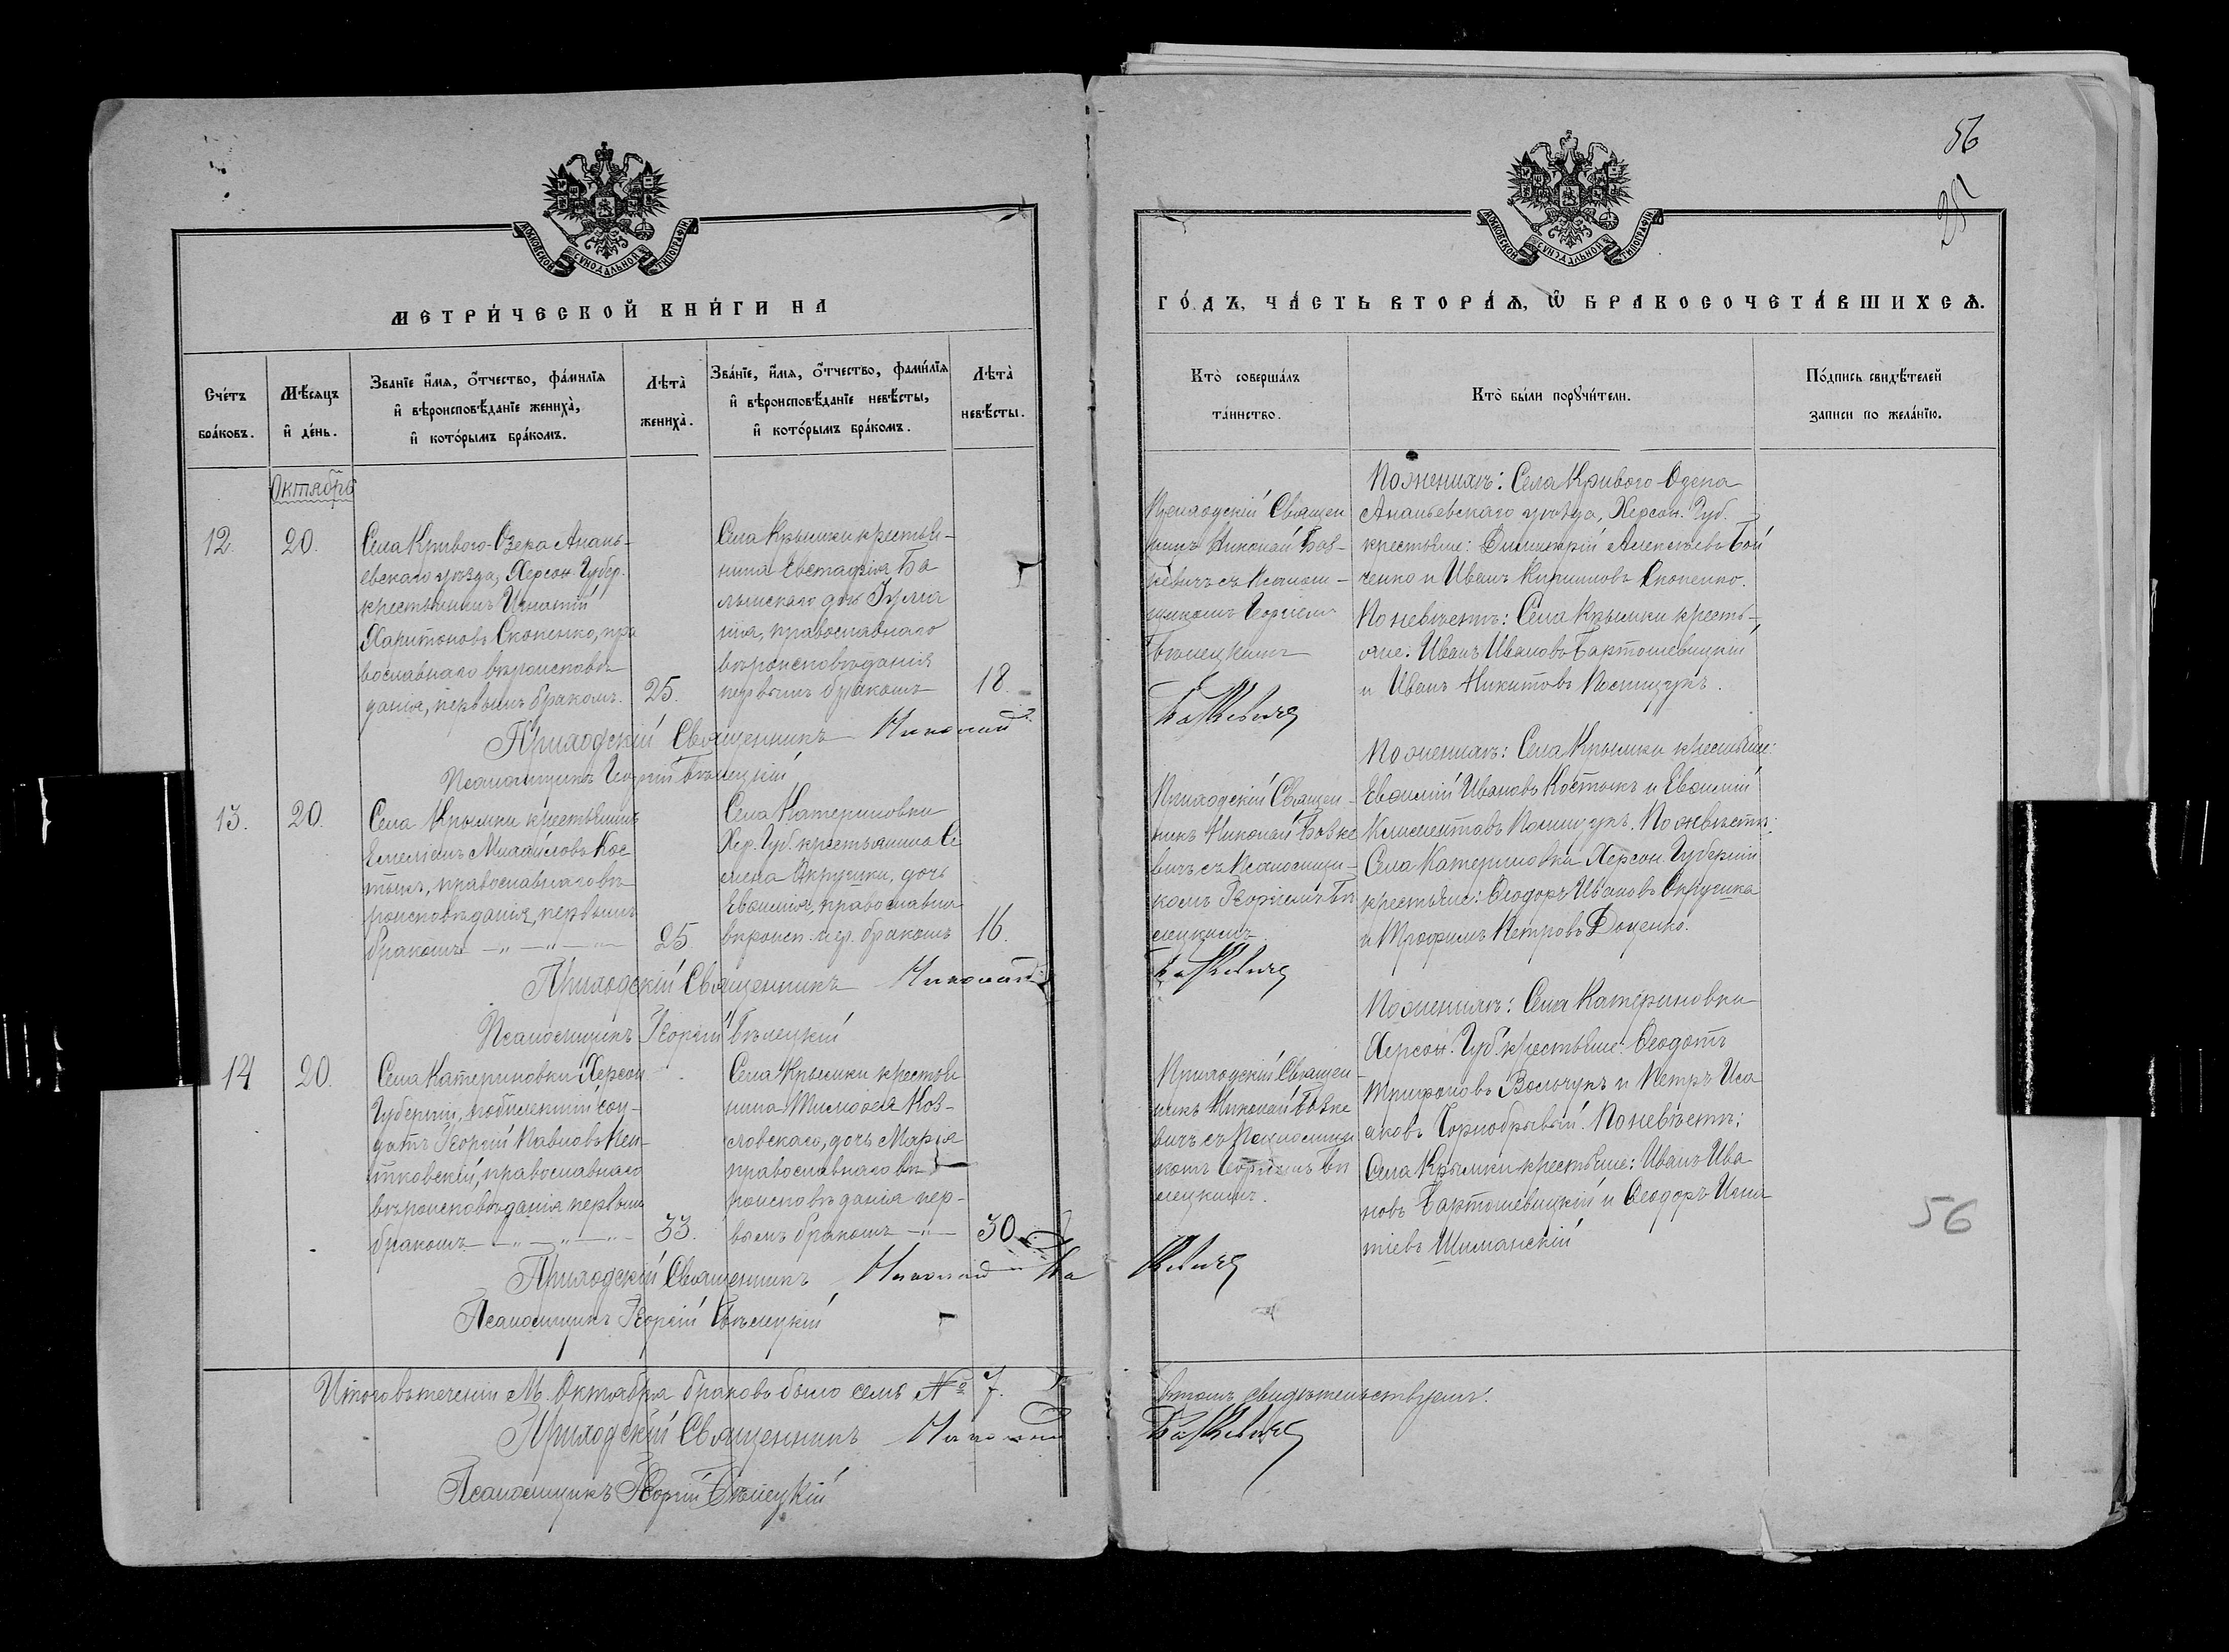 56
МОСКОВСКОЙ СѴНОДАЛЬНОЙ ТИПОГРАФІИ
МОСКОВСКОЙ СѴНОДАЛЬНОЙ ТИПОГРАФІИ
МЕТРИ́ЧЕСКОЙ КНИ́ГИ НА
ГО́ДЪ, ЧА́СТЬ ВТОРА́Ѧ, Ѡ БРАКОСОЧЕТА́ВШИХСѦ.
Сче́тъ
бра́ковъ.
Мѣ́сѧцъ
и҆ де́нь.
Зва́нїе и҆́мѧ, ѻ҆́тчество, фами́лїѧ
и҆ вѣроисповѣ́данїе жениха̀,
и҆ кото́рымъ бра́комъ.
Лѣта̀
жениха̀.
Зва́нїе, и҆́мѧ, ѻ҆́тчество, фами́лїѧ
и҆ вѣроисповѣ́данїе невѣ́сты,
и҆ кото́рымъ бра́комъ.
Лѣта̀
невѣ́сты.
Кто̀ соверша́лъ
та́инство.
Кто̀ бы́ли порꙋчи́тели.
По́дпись свидѣ́телей
записи по жела́нїю.
Октябрь
12.
20.
Села Криваго-Озера Анань-
евскаго уѣзда, Херсон Губер.
крестьянинъ Игнатій
Харитоновъ Скопенко, пра
вославнаго вѣроисповѣ
данія, первымъ бракомъ.
25.
Села Крымки крестья-
нина Евстафія Ба
лынскаго дочь Іулia
нія, православнаго
вѣроисповѣданія
первымъ бракомъ
18.
Приходскій Священ
никъ Николай Бов-
кевичъ съ Псалом-
щикомъ Георгіемъ
Бѣлецкимъ
По женихѣ: Села Криваго-Озера
Ананьевскаго уѣзда, Херсон. Губ.
крестьяне: Димитрій Алексѣевъ Бой
ченко и Иванъ Кирилловъ Скопенко.
По невѣстѣ: Села Крымки кресть-
яне: Иванъ Ивановъ Бартошевицкій
и Иванъ Никитовъ Полищукъ.
Приходскій Священникъ Николай
Псаломщикъ Георгій Бѣлецкій
13.
20.
Села Крымки крестьянинъ
Емеліанъ Михайловъ Кос
тыкъ, православнаго вѣ
роисповѣданія, первымъ
бракомъ — " — " —
25.
Села Катериновки
Хер. Губ. крестьянина Се
мена Окрушки, дочь
Евфимія, православна
вѣроисп. пер. бракомъ
16.
Приходскій Священ-
никъ Николай Бовке
вичъ съ Псаломщи-
комъ Георгіемъ Бѣ
лецкимъ
По женихѣ: Села Крымки крестьяне:
Евфимій Ивановъ Костыкъ и Евфимій
Климентовъ Полищукъ. По невѣстѣ:
Села Катериновки Херсон. Губерніи
крестьяне: Ѳеодоръ Ивановъ Окрушка
и Трофимъ Петровъ Доценко.
Приходскій Священникъ Николай
Псаломщикъ Георгій Бѣлецкій
14
20.
Села Катериновки Херсон
Губерніи, побилетный сол-
датъ Георгій Павловъ Пен-
тковскій, православнаго
вѣроисповѣданія первымъ
бракомъ — " — " — " —
33.
Села Крымки крестья
нина Тимофея Коз-
ловскаго, дочь Марія
православнаго вѣ
роисповѣданія пер-
вымъ бракомъ — " —
30.
Приходскій Священ
никъ Николай Бовке
вичъ съ Псаломщи
комъ Георгіемъ Бѣ
лецкимъ.
По женихѣ: Села Катериновки
Херсон. Губ. крестьяне: Ѳеодотъ
Трифоновъ Вольчукъ и Петръ Иса
аковъ Чорнобрывый. По невѣстѣ:
Села Крымки крестьяне: Иванъ Ива
новъ Бартошевицкій и Ѳеодоръ Игна
тіевъ Шиманскій
56
Приходскій Священникъ Николай Бовкевичъ
Псаломщикъ Георгій Бѣлецкій
Итого въ теченіи М. Октября браковъ было семь № 7. въ томъ свидѣтельствуемъ.
Приходскій Священникъ Николай Бовкевичъ
Псаломщикъ Георгій Бѣлецкій